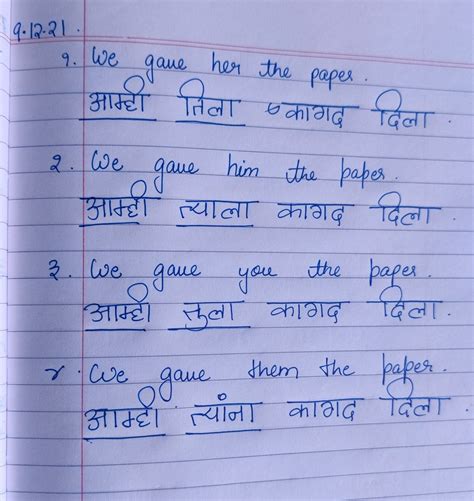 9.12.21.
१. We gave her the paper.
आम्ही तिला कागद दिला.
२. We gave him the paper.
आम्ही त्याला कागद दिला.
३. We gave you the paper.
आम्ही तुला कागद दिला.
४. We gave them the paper.
आम्ही त्यांना कागद दिला.